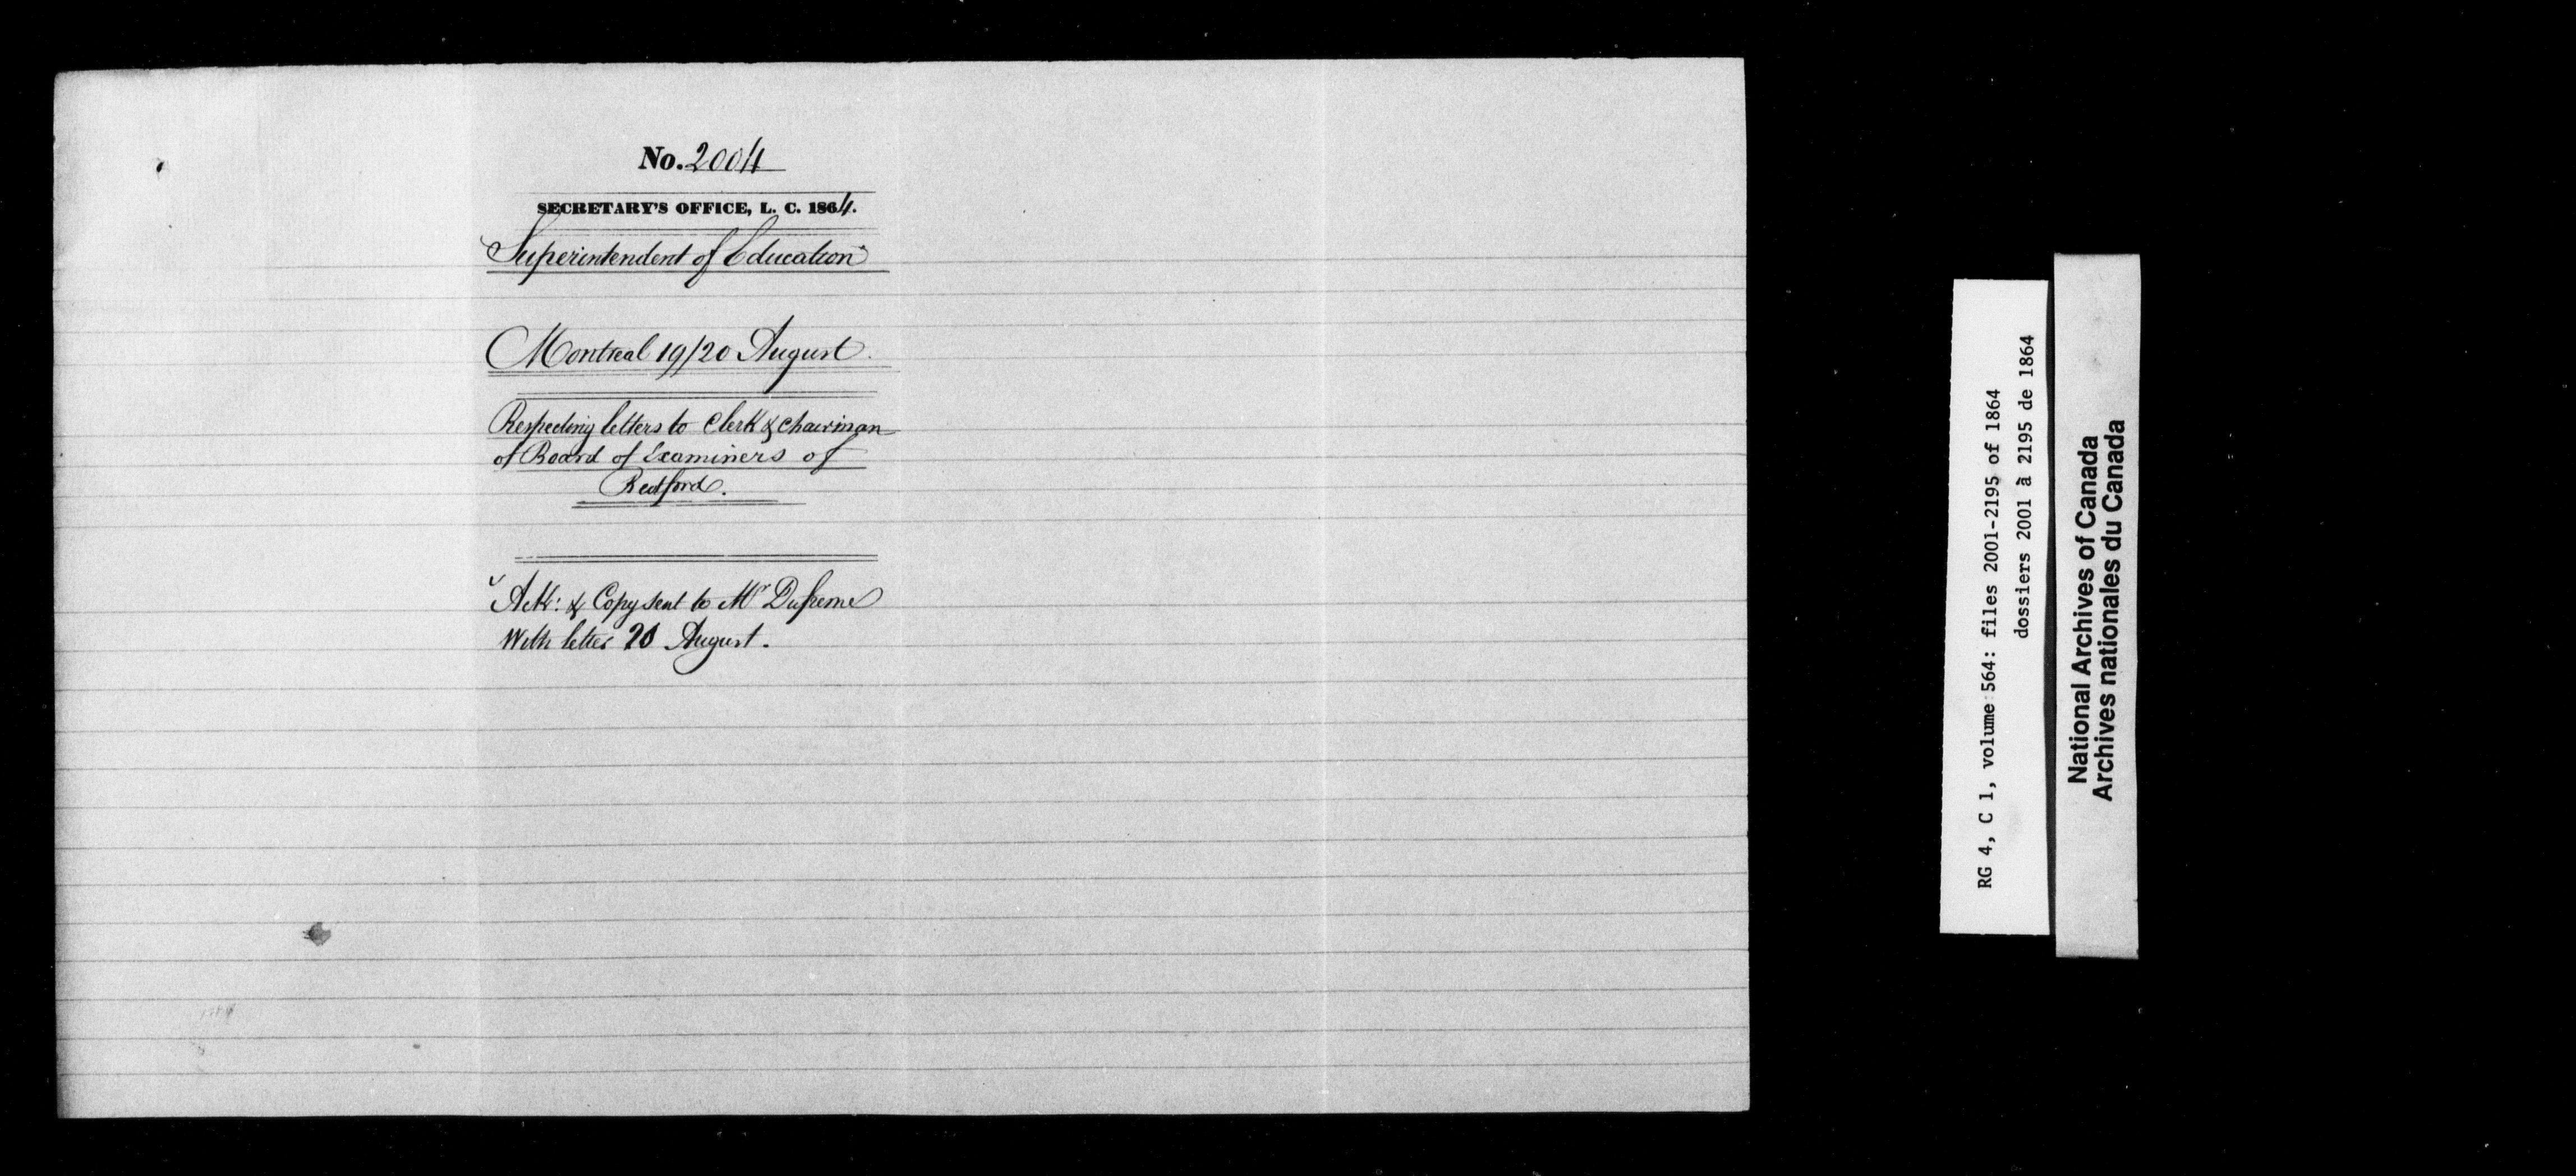 No. 2004
SECRETARY'S OFFICE, L. C. 1864.
Superintendent of Education
Montreal 19/20 August.
Respecting letters to Clerk & Chairman
of Board of Examiners of
Bedford.
Ack: & Copy sent to Mr Dufresne
With letter 20 August.
RG 4, C 1, volume 564: files 2001-2195 of 1864
dossiers 2001 à 2195 de 1864
National Archives of Canada
Archives nationales du Canada